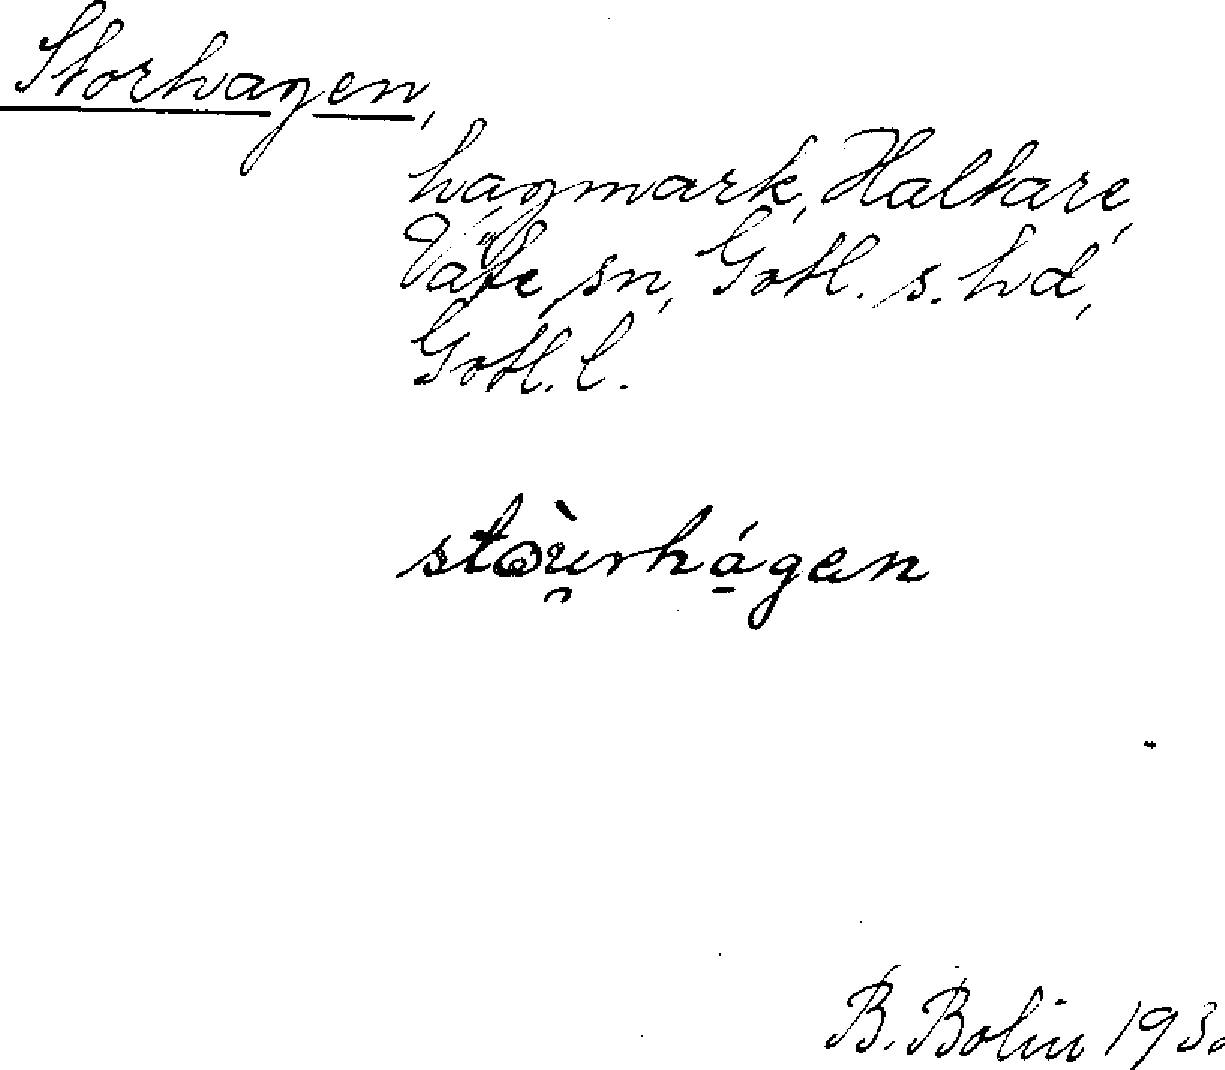 Storhagen,
hagmark, Haltare,
Väte sn, Gotl. s. hd,
Gotl. l.
stòu̯rhá̱gen
B. Bolin 193